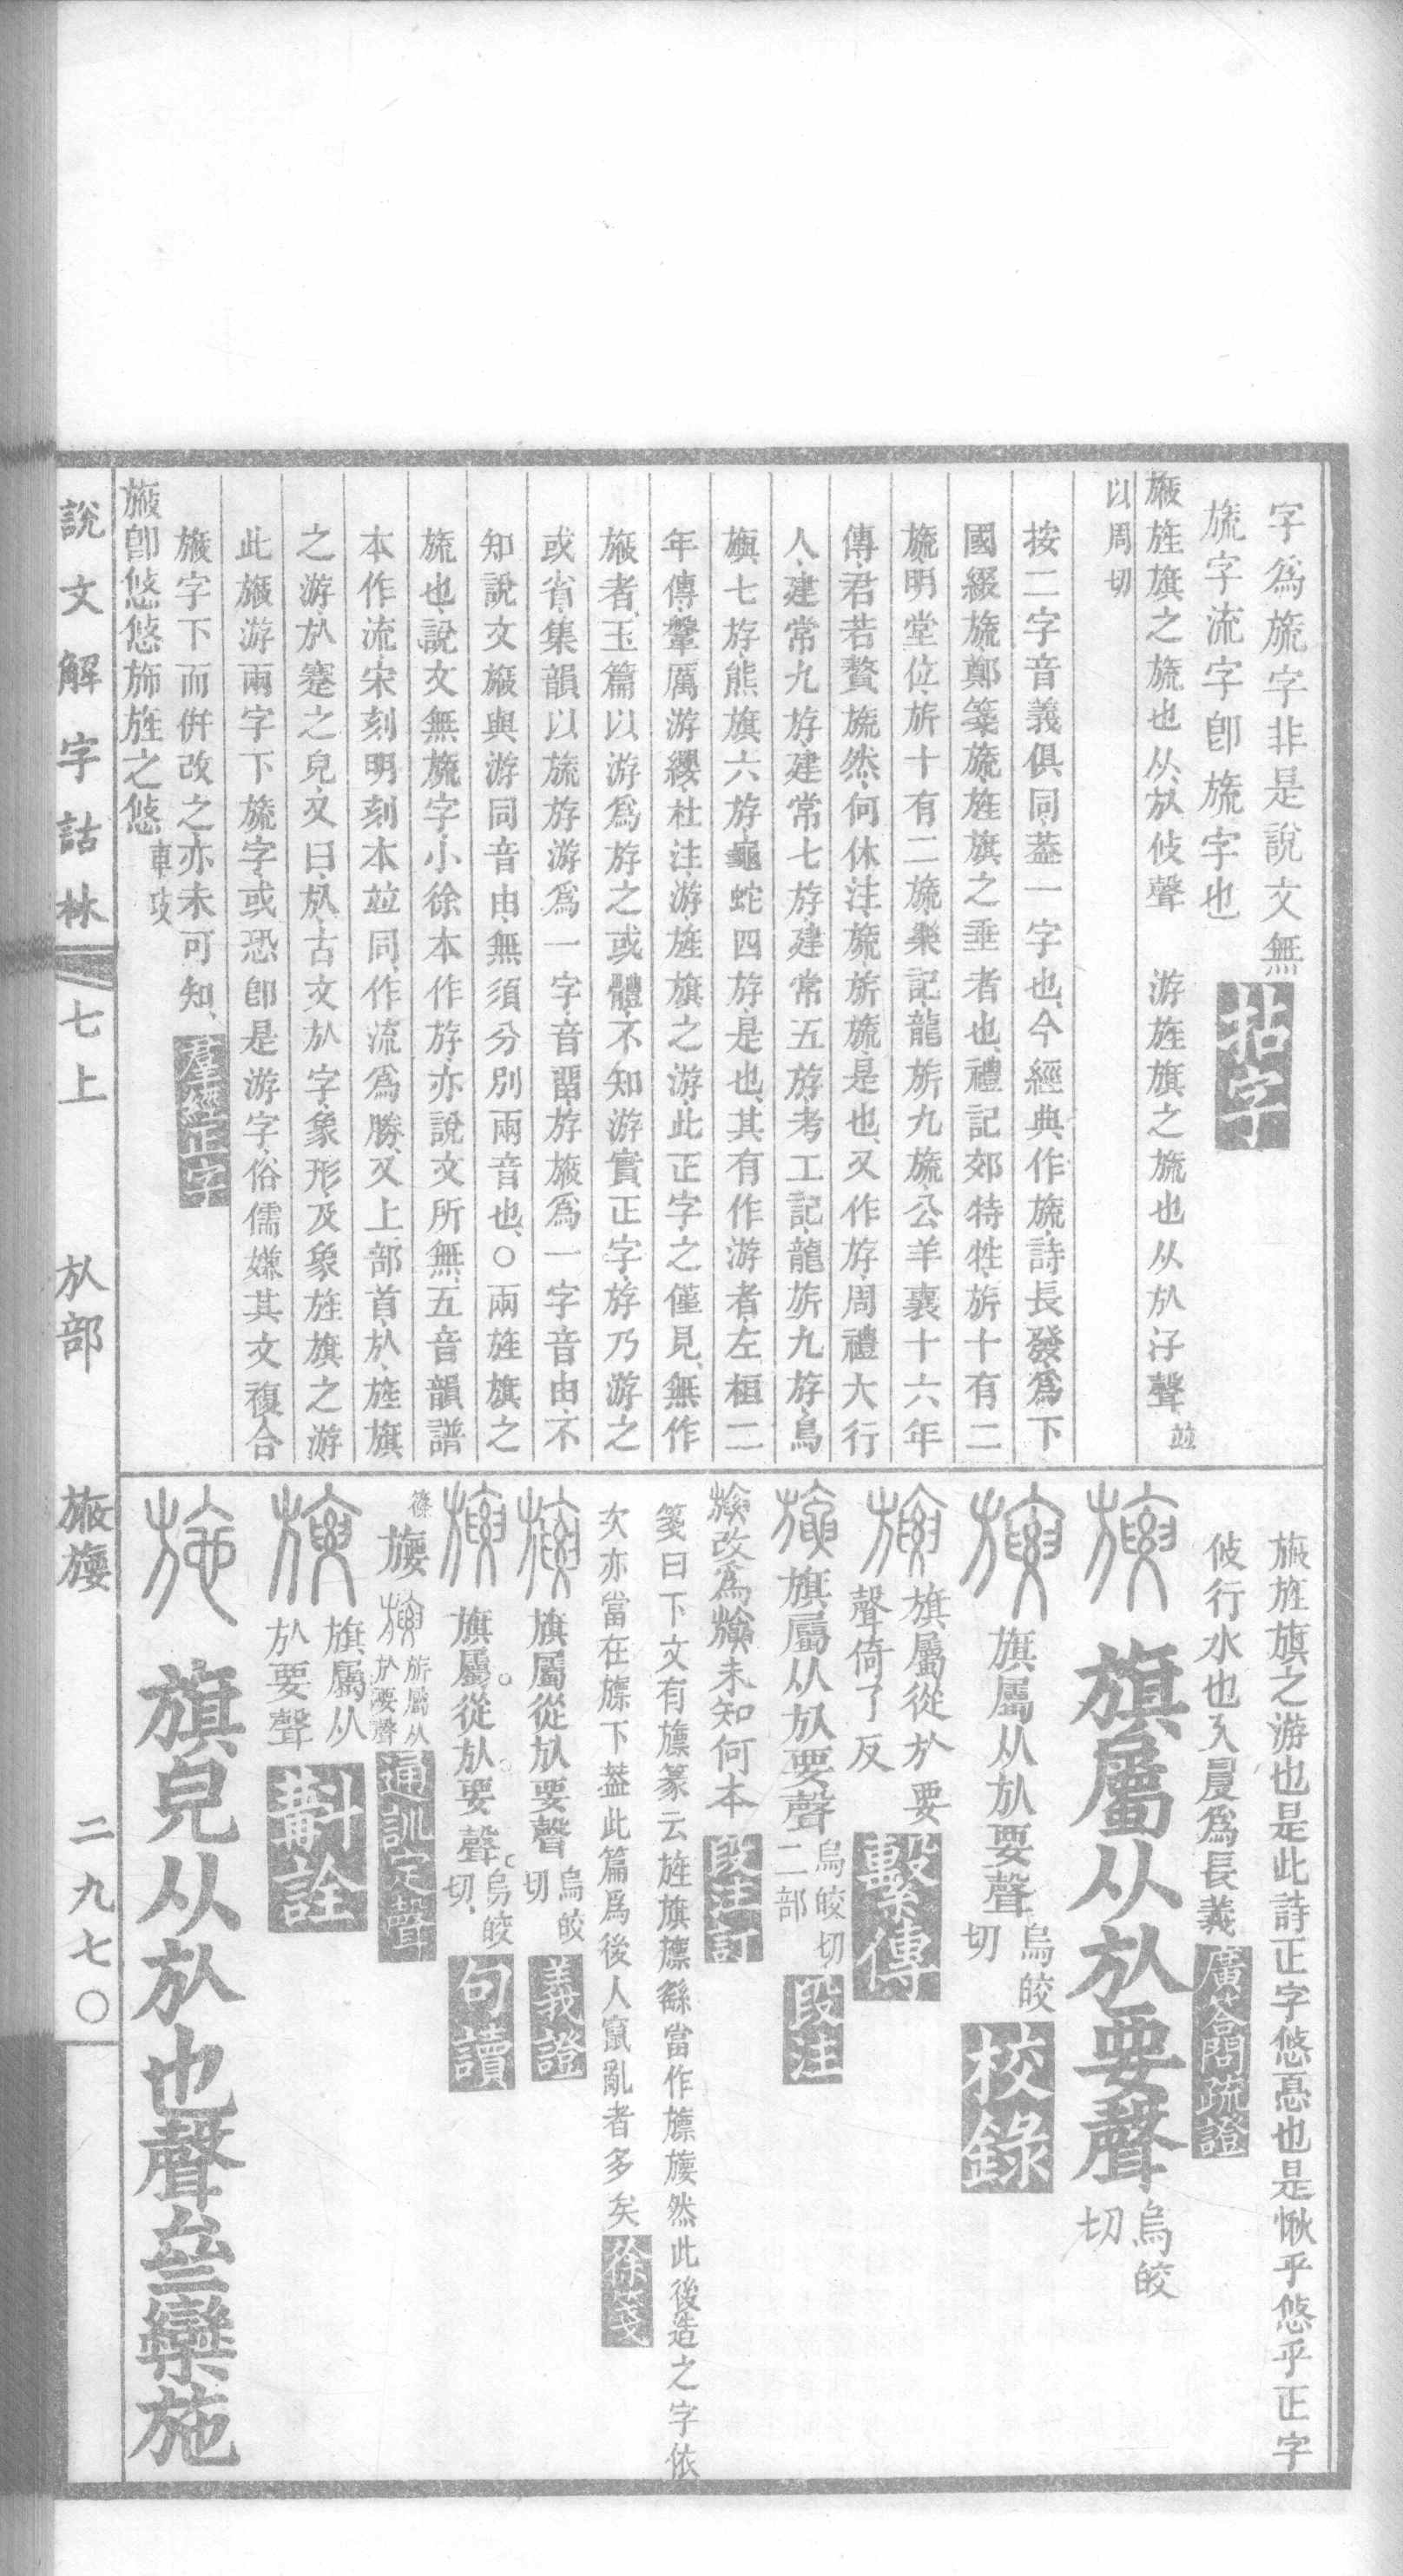 字爲旒字非是說文無
旒字流字卽旒字也 拈字
㫍旌旗之旒也从㫃攸聲 游旌旗之旒也从㫃汓聲 竝
以周切
按二字音義俱同、葢一字也、今經典作旒、詩長發、爲下
國綴旒、鄭箋、旒、旌旗之垂者也、禮記郊特牲、旂十有二
旒、明堂位、旂十有二旒、樂記、龍旂九旒、公羊襄十六年
傳、君若贅旒然、何休注、旒、旂旒、是也、又作斿、周禮大行
人、建常九斿、建常七斿、建常五斿、考工記、龍旂九斿、鳥
旟七斿、熊旗六斿、龜蛇四斿、是也、其有作游者、左桓二
年傳、鞶厲游纓、杜注、游、旌旗之游、此正字之僅見、無作
㫍者、玉篇以游爲斿之或體、不知游實正字、斿乃游之
或省、集韻以旒斿游爲一字、音畱、斿㫍爲一字音由、不
知說文㫍與游同音由、無須分別兩音也、○兩旌旗之
旒也、說文無旒字、小徐本作斿、亦說文所無、五音韻譜
本作流、宋刻明刻本竝同、作流爲勝、又上部首㫃、旌旗
之游㫃蹇之皃、又曰、㫃、古文㫃字、象形、及象旌旗之游、
此㫍游兩字下旒字、或恐卽是游字、俗儒嫌其文複合
㫍字下而併改之、亦未可知、 羣經正字
㫍卽悠悠斾旌之悠 車攻
㫍旌旗之游也是此詩正字悠惪也是愀乎悠乎正字
攸行水也久㫗爲長義 廣答問疏證
旗屬从㫃要聲 烏皎切
旗屬从㫃要聲 烏皎切 校錄
旗屬從㫃要聲倚了反 繫傳
旗屬从㫃要聲 烏皎切二部 段注
改爲 未知何本 段注訂
箋曰下文有旚篆云旌旗旚繇當作旚㫏然此後造之字依
次亦當在旚下葢此篇爲後人竄亂者多矣 徐箋
旗屬從㫃要聲 烏皎切 義證
旗屬從㫃要聲 烏皎切 句讀
篠 㫏 旂屬从㫃要聲 通訓定聲
旗屬从㫃要聲 斠詮
旗皃从㫃也聲亝欒施
說文解字詁林 七上 㫃部 㫍㫏 二九七〇